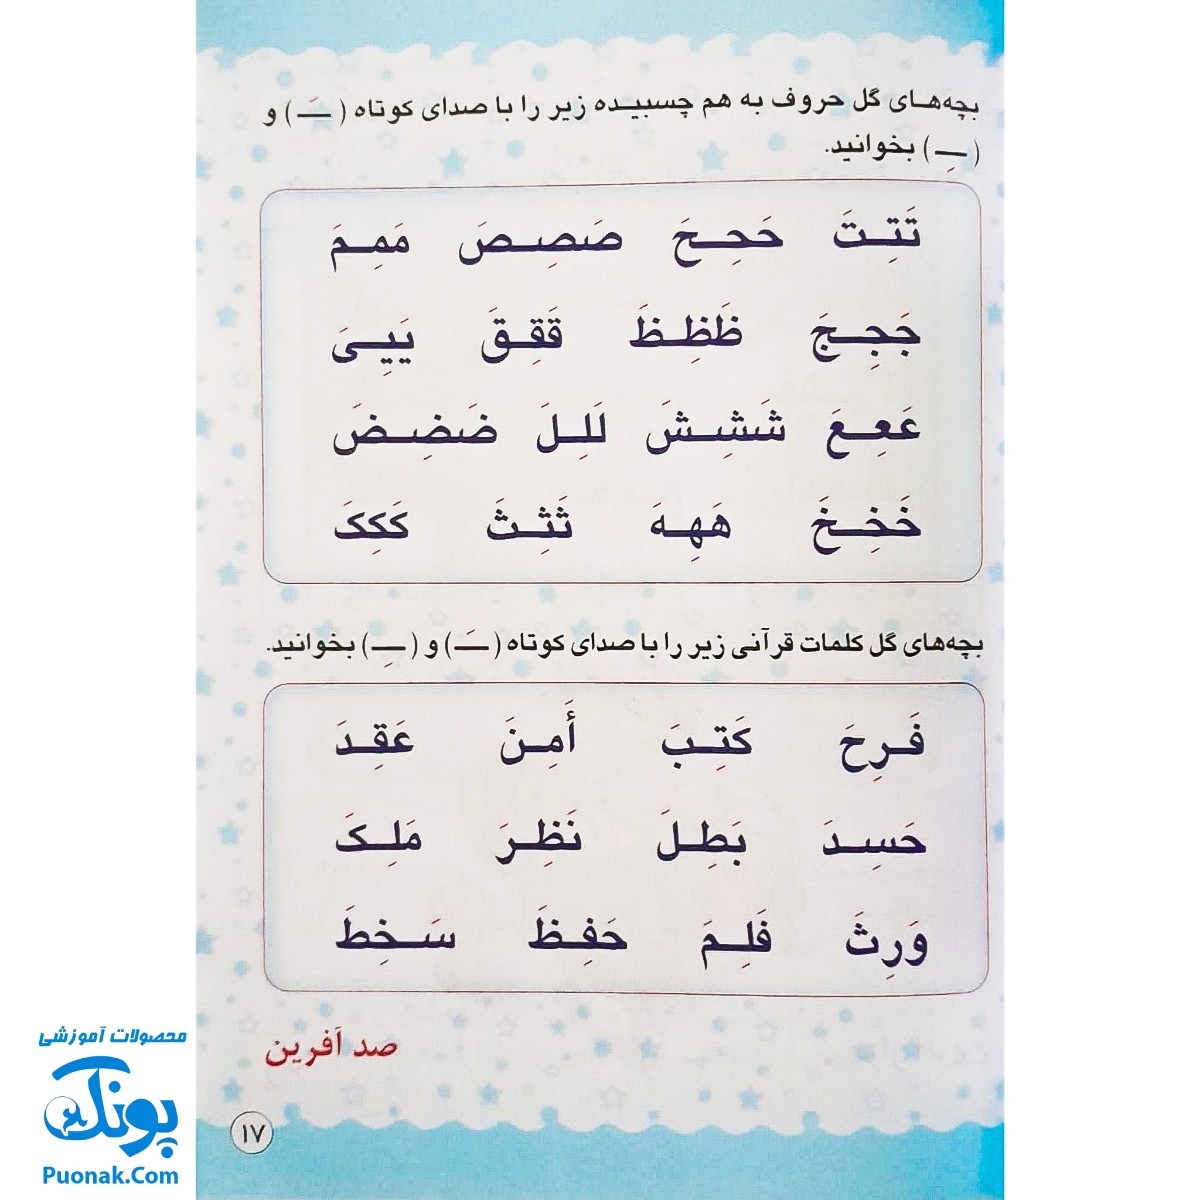 بچه‌های گل حروف به هم چسبیده زیر را با صدای کوتاه ( ـَـ ) و
( ـِـ ) بخوانید.
تَتِـتَ حَحِـحَ صَصِـصَ مَمِـمَ
جَجِـجَ ظَظِـظَ قَقِـقَ یَیِـیَ
عَعِـعَ شَشِـشَ لَلِـلَ ضَضِـضَ
خَخِـخَ هَهِـهَ ثَثِـثَ کَکِکَ
بچه‌های گل کلمات قرآنی زیر را با صدای کوتاه ( ـَـ ) و ( ـِـ ) بخوانید.
فَـرِحَ کَتِـبَ أَمِـنَ عَقِـدَ
حَسِـدَ بَطِـلَ نَظِـرَ مَلِـکَ
وَرِثَ فَلِـمَ حَفِـظَ سَـخِطَ
صد آفرین
۱۷
محصولات آموزشی
پونک
Puonak.Com